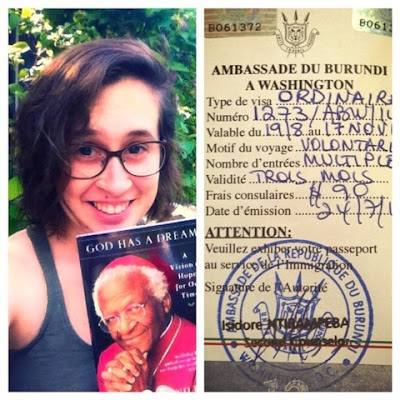 GOD HAS A DREAM
A
Vision
Hope
for Ou
Tim
B061372
B061
AMBASSADE DU BURUNDI
A WASHINGTON
Type de visa ORDINAIRE
Numéro 1273/ABW/1
Valable du 19/8 au 17 NOV
Motif du voyage VOLONTARI
Nombre d'entrées MULTIPLE
Validité TROIS MOIS
Frais consulaires $ 90
Date d'émission 24/7/1
ATTENTION:
Veuillez exhiber votre passeport
au service de l'Immigration
Signature de l'Autorité
AMBASSADE DE LA REPUBLIQUE DU BURUNDI
Isidore NTIRAMPEBA
Second Counselor